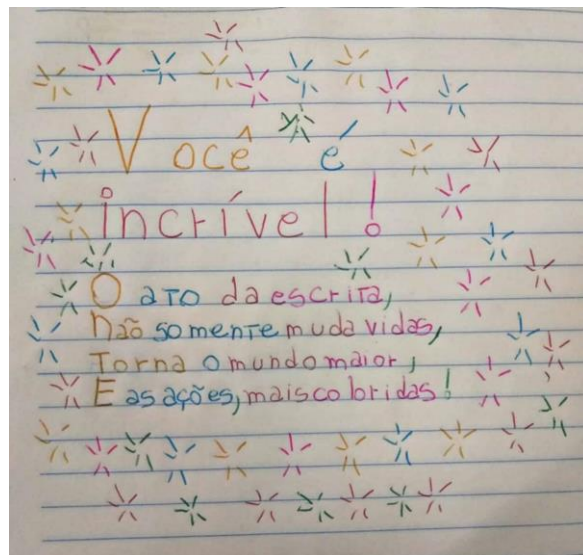 Você é
incrível!
O ato da escrita,
não somente muda vidas,
Torna o mundo maior,
E as ações, mais coloridas!